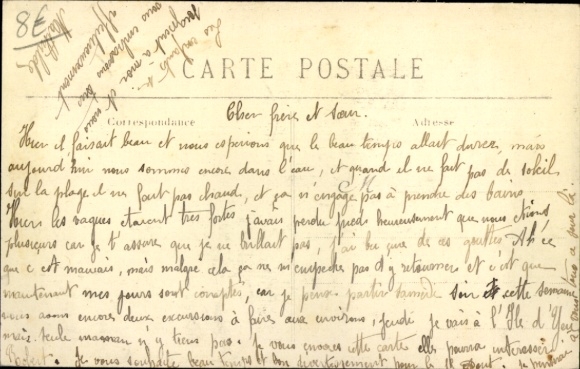 8E
Les enfants se
joignent à moi et nous
vous embrassons tous
affectueusement
Mathilde
CARTE POSTALE
Correspondance
Adresse
Cher frère et Sœur.
Hier il faisait beau et nous esperions que le beau temps allait durer, mais
aujourd'hui nous sommes encore dans l'eau, et quand il ne fait pas de soleil
sur la plage il ne fait pas chaud, et ça n'engage pas à prendre des bains
Hier les vagues étaient très fortes j'avais perdu pieds heureusement que nous étions
plusieurs car je t'assure que je ne brillait pas, j'ai bu une de ces gouttes Ah ce
que c'est mauvais, mais malgré cela ça ne m'empêche pas d'y retourner et c'est que
maintenant mes jours sont comptés, car je pense partir samedi soir et cette semaine
nous avons encore deux excursions à faires aux environs, jeudi je vais à l'Ile d'Yeu
mais seule maman n'y tiens pas. Je vous envoies cette carte elle pourra intéresser
Robert. Je vous souhaite beau temps et bon divertissement pour le 15 Août. Je